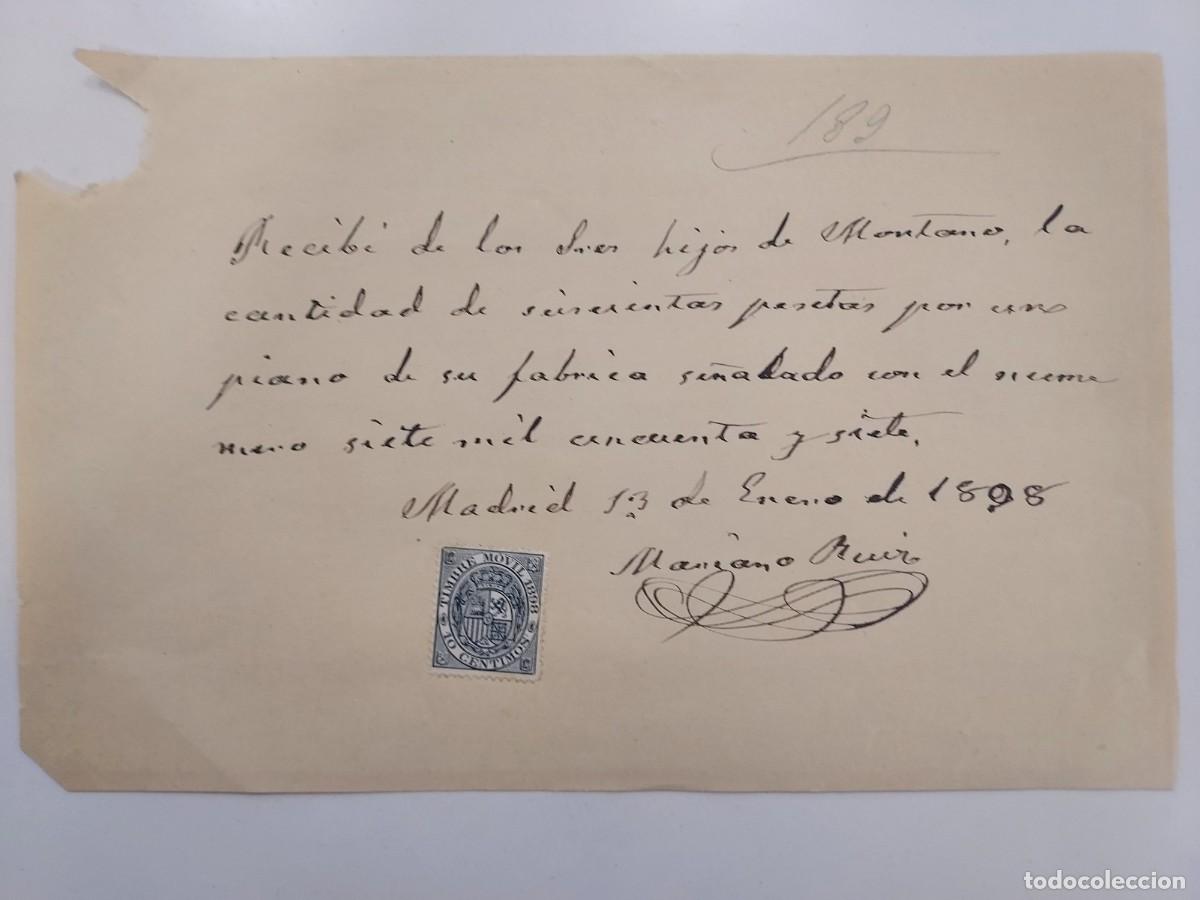 189
Recibi de los Sres hijos de Montano, la
cantidad de seiscientas pesetas por un
piano de su fabrica señalado con el nume
mero siete mil cincuenta y siete.
Madrid 13 de Enero de 1898
Mariano Ruiz
TIMBRE MOVIL 1898
10 CENTIMOS
todocoleccion